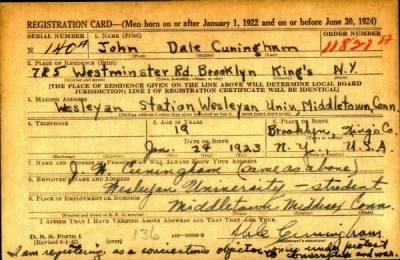 REGISTRATION CARD—(Men born on or after January 1, 1922 and on or before June 30, 1924)
SERIAL NUMBER 1. NAME (Print) ORDER NUMBER
N 140 A John Dale Cuningham 11821 A
(First) (Middle) (Last)
2. PLACE OF RESIDENCE (Print)
785 Westminster Rd. Brooklyn King's N.Y.
[THE PLACE OF RESIDENCE GIVEN ON THE LINE ABOVE WILL DETERMINE LOCAL BOARD
JURISDICTION; LINE 2 OF REGISTRATION CERTIFICATE WILL BE IDENTICAL]
3. MAILING ADDRESS
Wesleyan Station, Wesleyan Univ, Middletown, Conn.
4. TELEPHONE 5. AGE IN YEARS 6. PLACE OF BIRTH
19 Brooklyn, Kings Co.
DATE OF BIRTH
Jan. 24 1923 N.Y. U.S.A.
7. NAME AND ADDRESS OF PERSON WHO WILL ALWAYS KNOW YOUR ADDRESS
J. W. Cuningham (same as above)
8. EMPLOYER'S NAME AND ADDRESS
Wesleyan University - student
9. PLACE OF EMPLOYMENT OR BUSINESS
Middletown Middlesex Conn.
I AFFIRM THAT I HAVE VERIFIED ABOVE ANSWERS AND THAT THEY ARE TRUE.
D. S. S. Form 1
(Revised 6-1-42) 136 Dale Cuningham
I am registering, as a conscientious objector, under protest
to conscription and war.